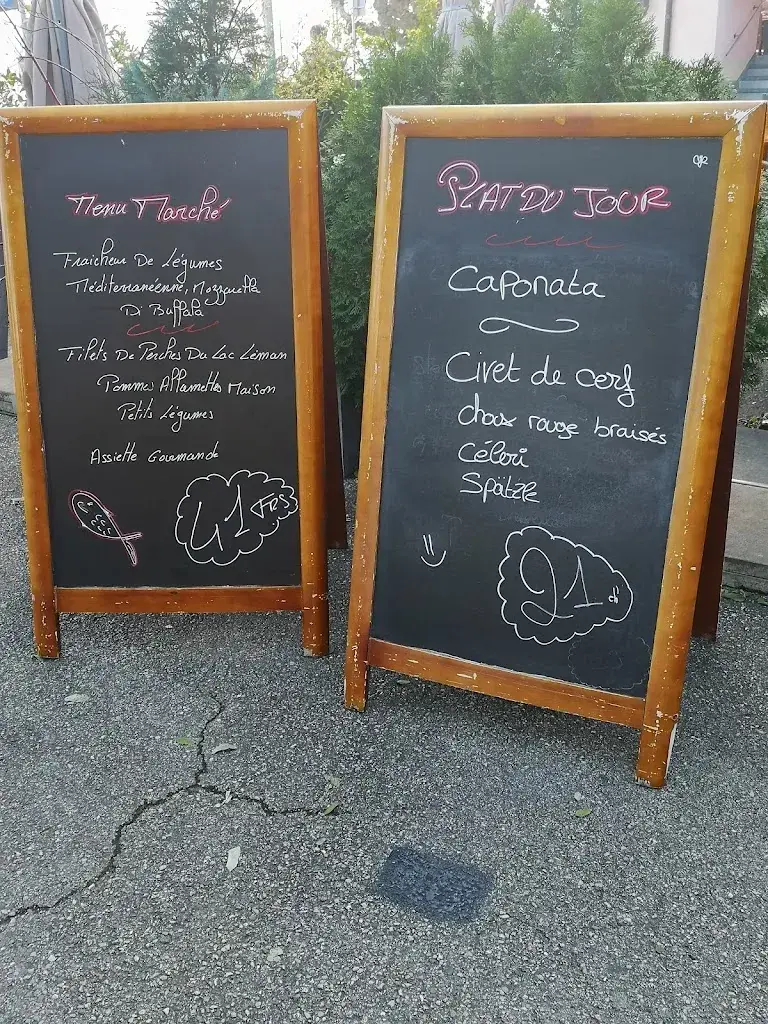 Menu Marché
Fraicheur De Légumes
Méditerranéenne, Mozzarella
Di Buffala
Filets De Perches Du Lac Léman
Pommes Allumettes Maison
Petits Légumes
Assiette Gourmande
41 Frs
PLAT DU JOUR
Caponata
Civet de cerf
choux rouge braisés
Céleri
Spätzle
21 ch